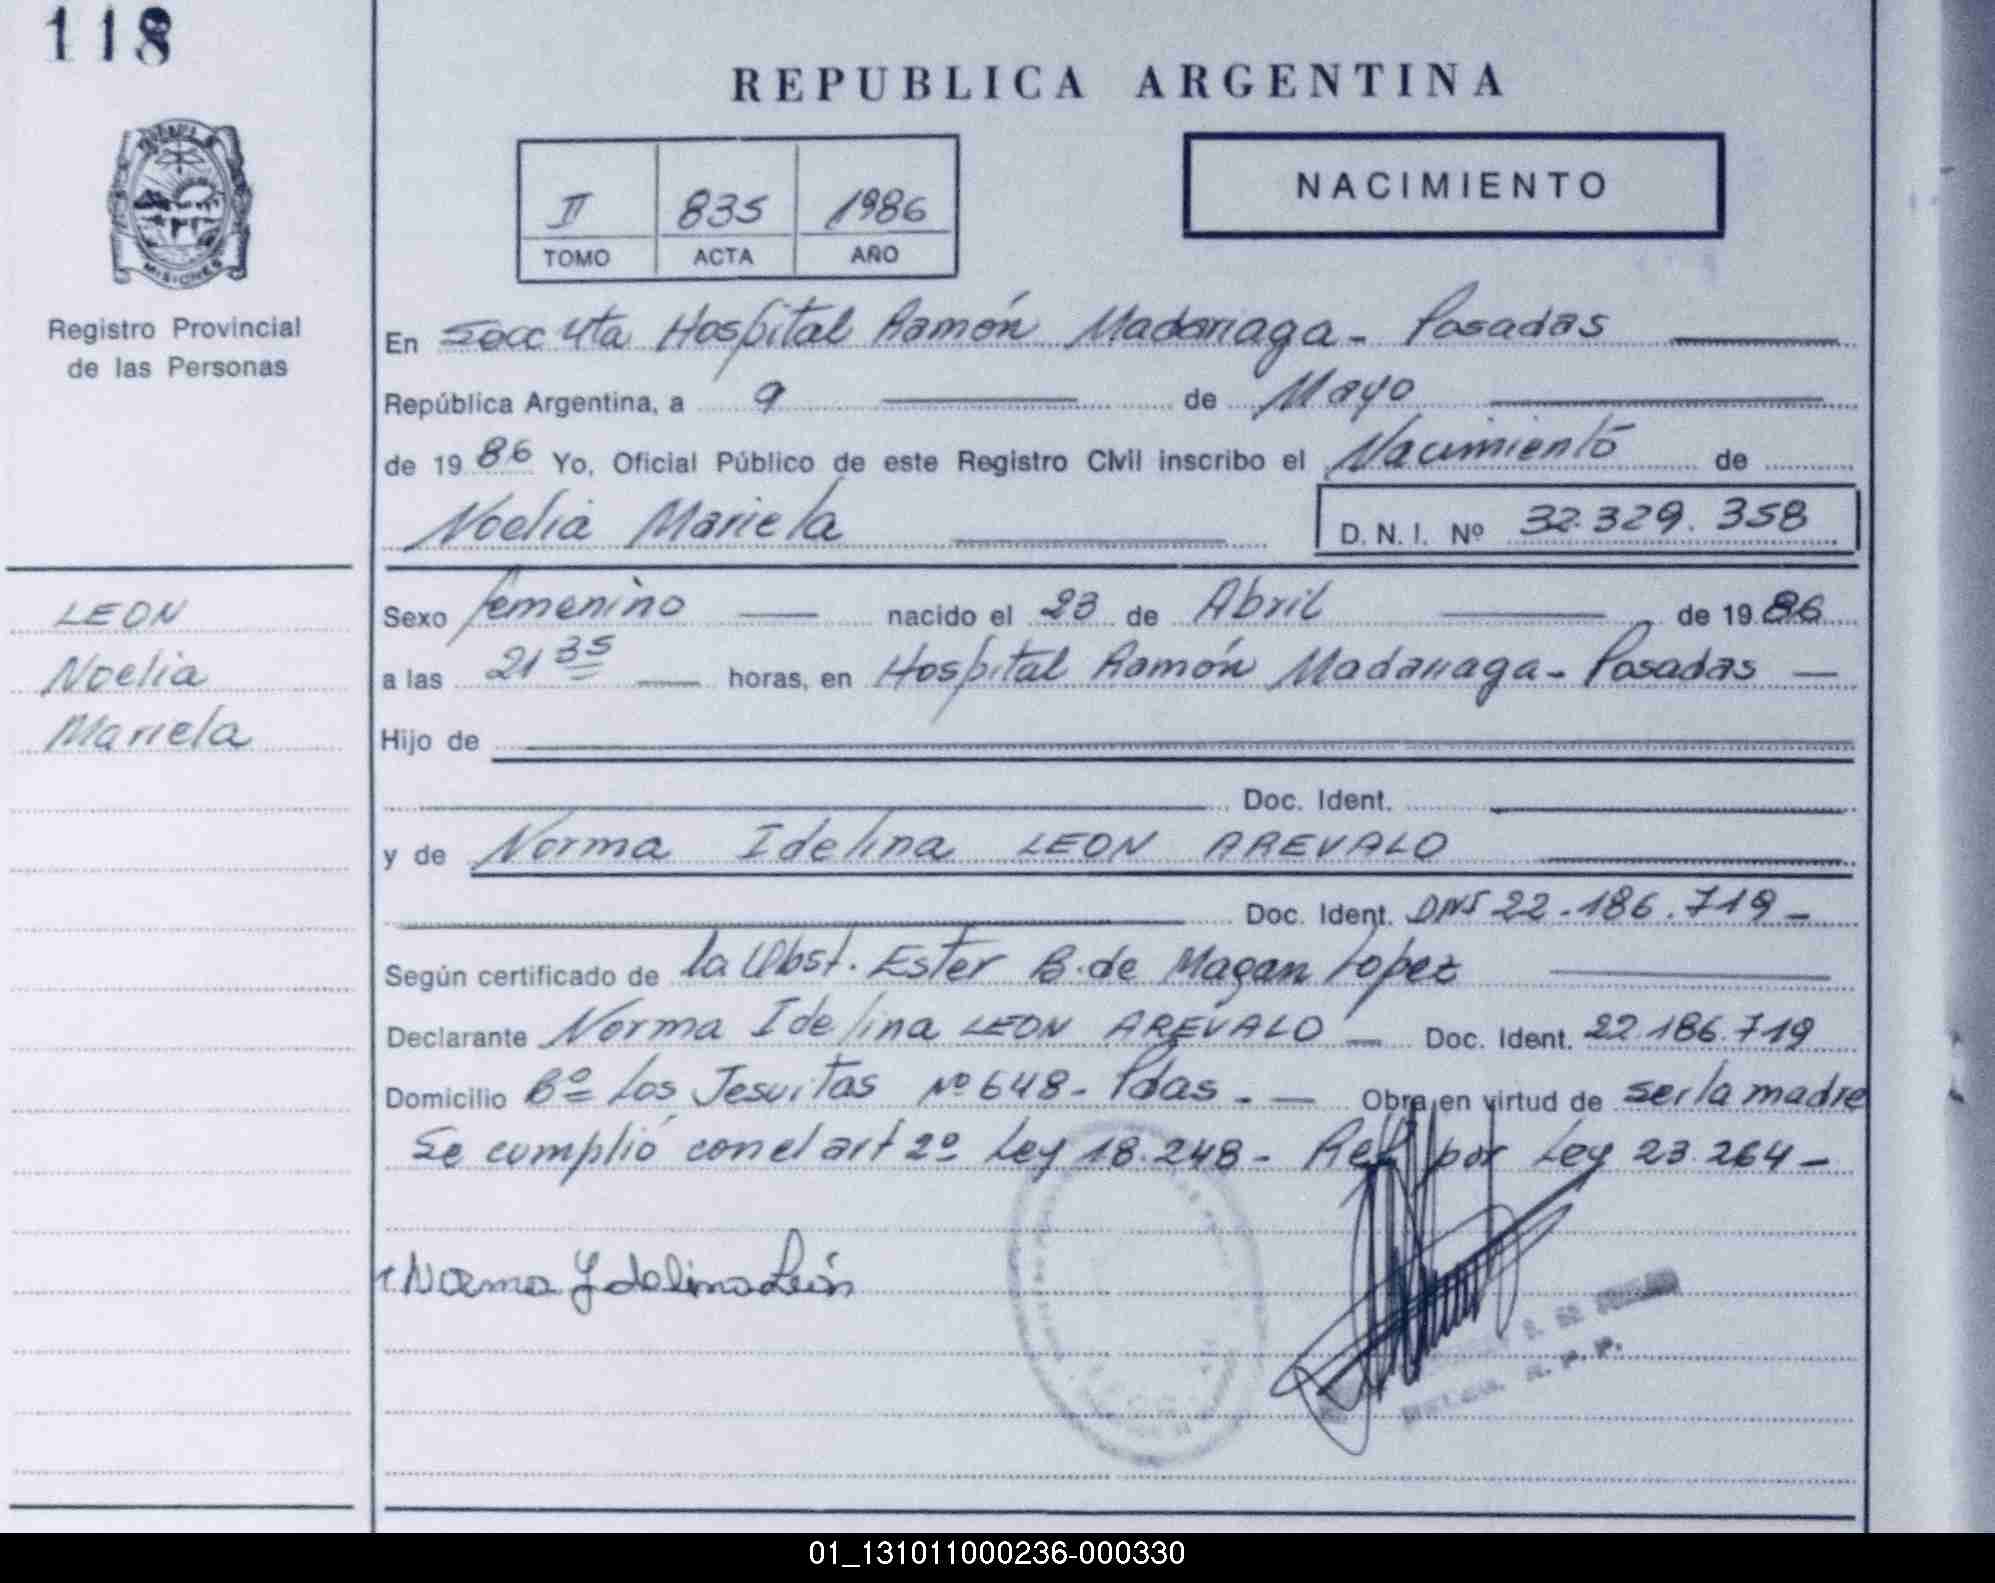 118
REPUBLICA ARGENTINA
NACIMIENTO
II 835 1986
TOMO ACTA AÑO
MISIONES
Registro Provincial
de las Personas
En Secc 4ta Hospital Ramón Madariaga - Posadas
República Argentina, a 9 de Mayo
de 1986 Yo, Oficial Público de este Registro Civil inscribo el Nacimiento de
Noelia Mariela
D. N. I. Nº 32.329.358
LEON
Noelia
Mariela
Sexo femenino nacido el 23 de Abril de 1986
a las 21 35 horas, en Hospital Ramón Madariaga - Posadas
Hijo de
Doc. Ident.
y de Norma Idelina LEON AREVALO
Doc. Ident. DNI 22.186.719 -
Según certificado de la Obst. Ester B. de Magan Lopez
Declarante Norma Idelina LEON AREVALO Doc. Ident. 22.186.719
Domicilio Bº Los Jesuitas Nº 648 - Pdas - Obra en virtud de ser la madre
Se cumplió con el art 2º Ley 18.248 - Ref por Ley 23.264 -
Norma Ydelina León
R. P. P.
01_131011000236-000330